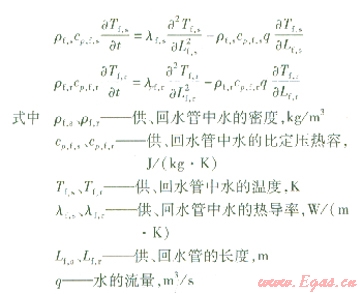 ρf,s cp,f,s ∂Tf,s/∂t = λf,s ∂²Tf,s/∂L²f,s − ρf,s cp,f,s q ∂Tf,s/∂Lf,s
ρf,r cp,f,r ∂Tf,r/∂t = λf,r ∂²Tf,r/∂L²f,r − ρf,r cp,f,r q ∂Tf,r/∂Lf,r
式中 ρf,s、ρf,r——供、回水管中水的密度,kg/m³
cp,f,s、cp,f,r——供、回水管中水的比定压热容,
J/(kg·K)
Tf,s、Tf,r——供、回水管中水的温度,K
λf,s、λf,r——供、回水管中水的热导率,W/(m
·K)
Lf,s、Lf,r——供、回水管的长度,m
q——水的流量,m³/s
www.Egas.cn